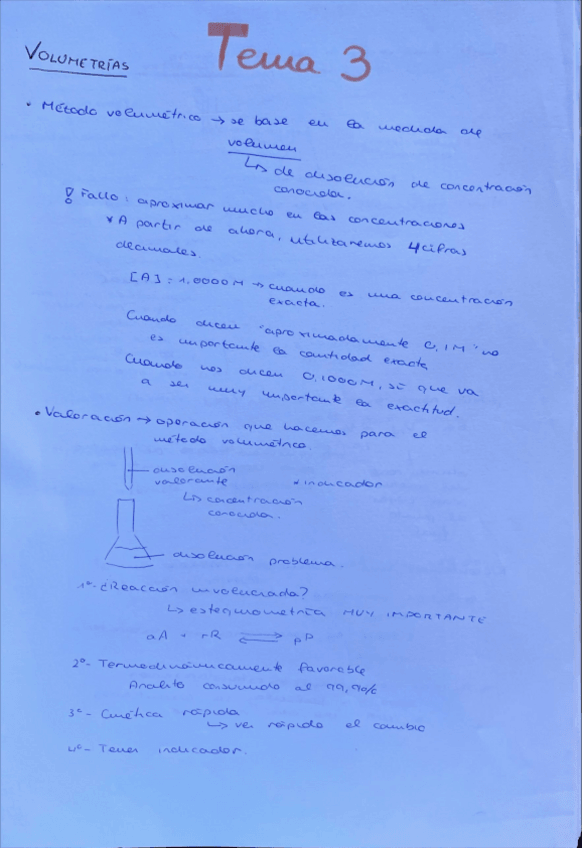 Tema 3
VOLUMETRÍAS
• Método volumétrico → se base en la medida de
volumen
↳ de disolución de concentración
conocida.
! Fallo: aproximar mucho en las concentraciones
* A partir de ahora, utilizaremos 4 cifras
decimales.
[A] = 1,0000M → cuando es una concentración
exacta.
Cuando dicen "aproximadamente 0,1M" no
es importante la cantidad exacta
Cuando nos dicen 0,1000M, sí que va
a ser muy importante la exactitud.
• Valoración → operación que hacemos para el
método volumétrico.
disolución
valorante
• indicador
↳ concentración
conocida.
disolución problema.
1º- ¿Reacción involucrada?
↳ estequiometría MUY IMPORTANTE
aA + rR ⇌ pP
2º- Termodinámicamente favorable
Analito consumido al 99,9%
3º- Cinética rápida
↳ ver rápido el cambio
4º- Tener indicador.